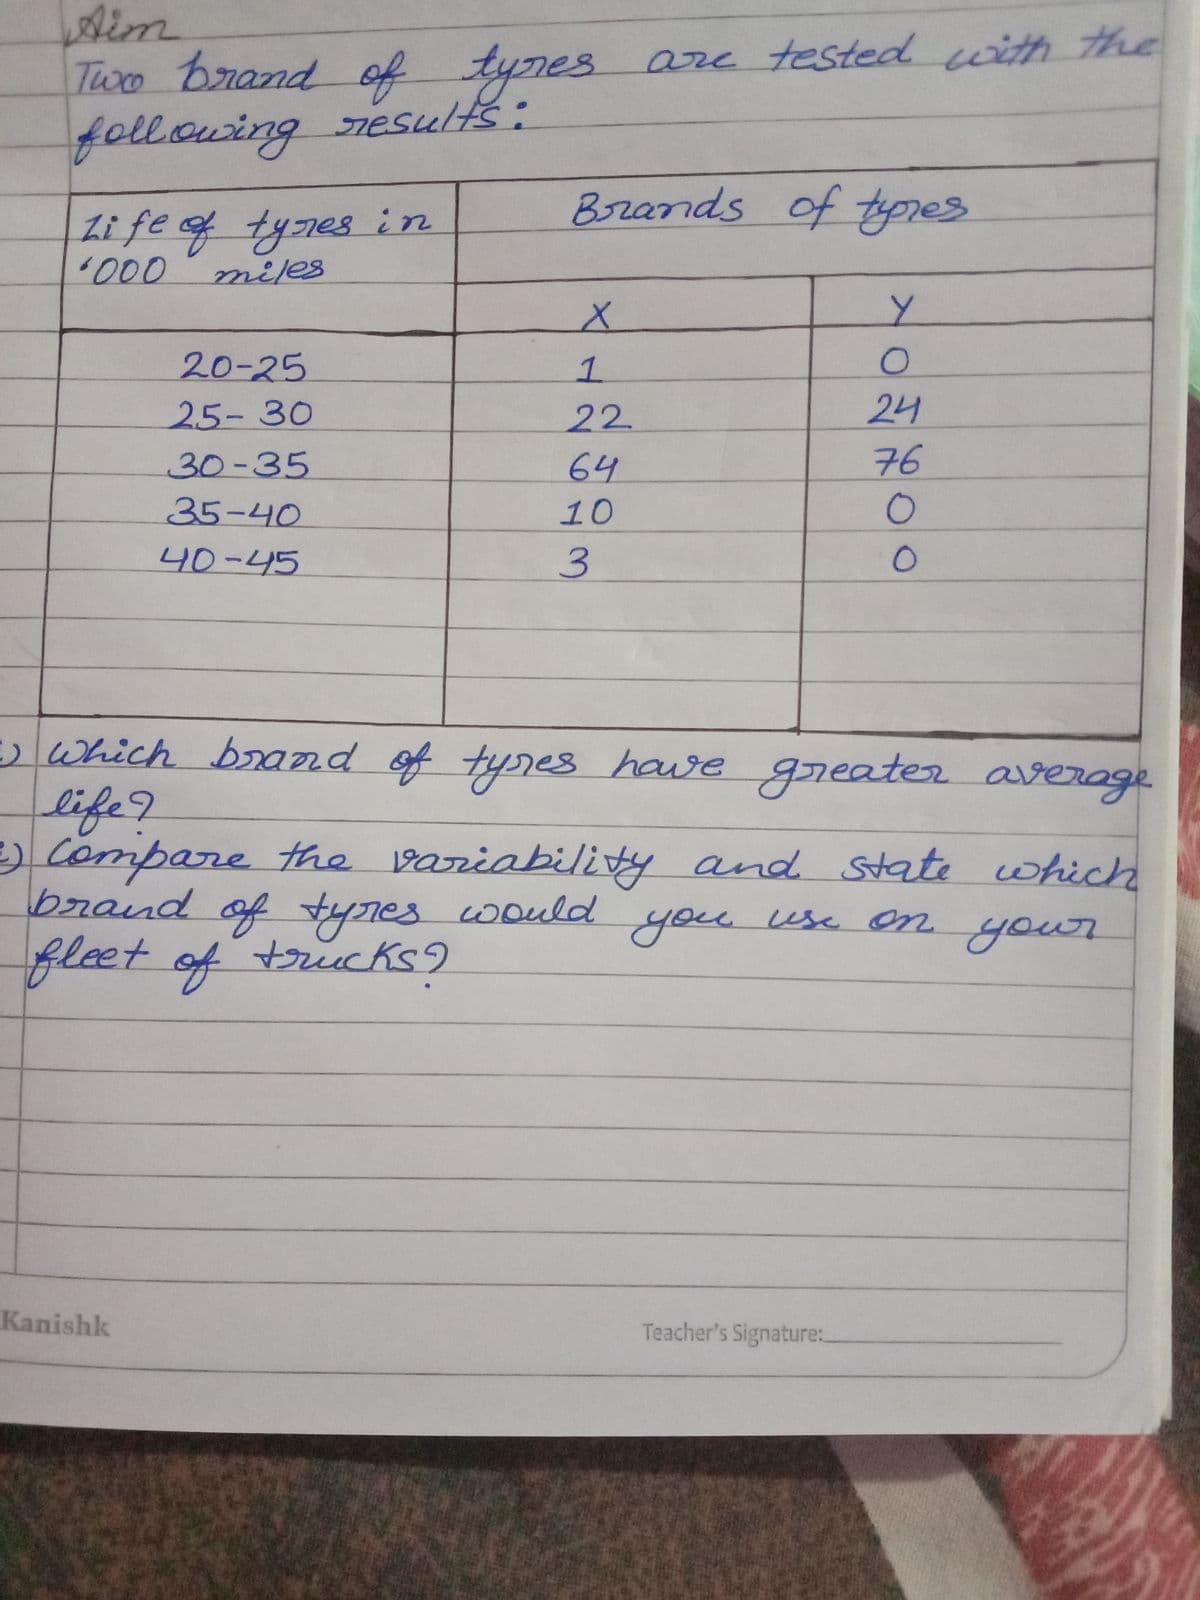 Aim
Two brand of tyres are tested with the
following results:
Life of tyres in
'000 miles
Brands of tyres
X Y
20-25 1 0
25-30 22 24
30-35 64 76
35-40 10 0
40-45 3 0
) Which brand of tyres have greater average
life?
) Compare the variability and state which
brand of tyres would you use on your
fleet of trucks?
Kanishk
Teacher's Signature: